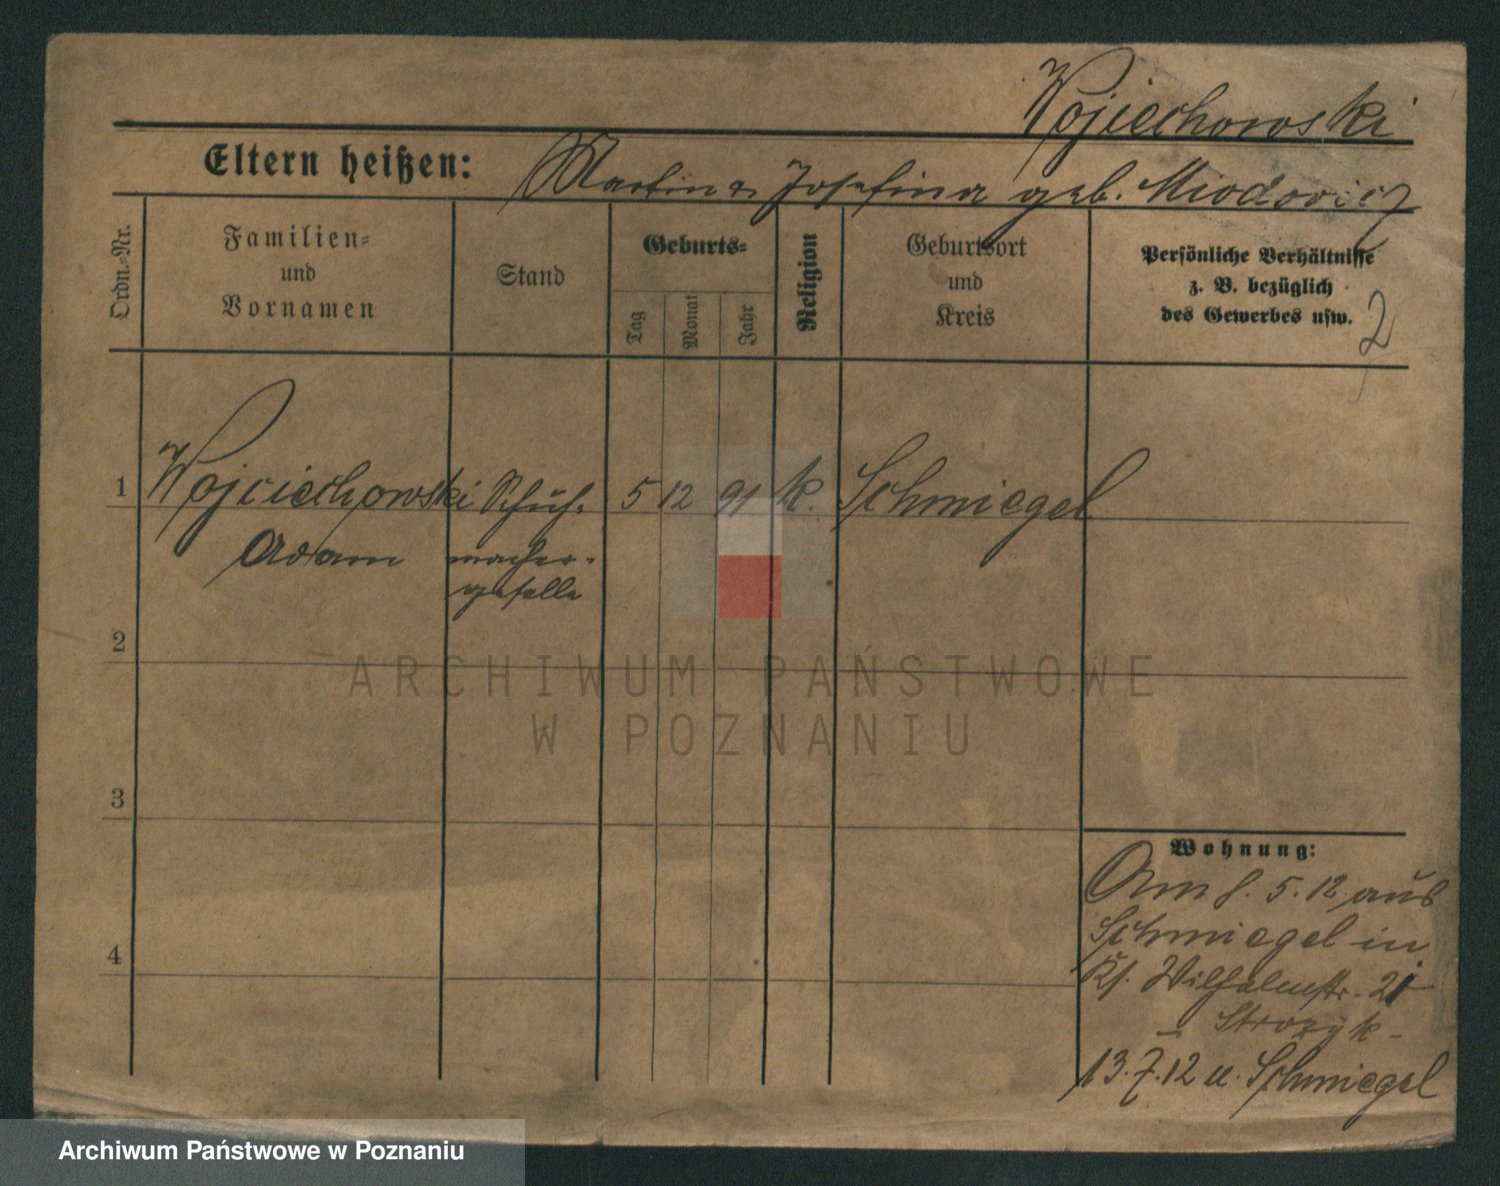 Wojciechowski
Eltern heißen: Martin u. Josefina geb. Miodowicz
Ordn.-Nr.
Familien-
und
Vornamen
Stand
Geburts-
Tag
Monat
Jahr
Religion
Geburtsort
und
Kreis
Persönliche Verhältnisse
z. B. bezüglich
des Gewerbes usw.
2
1 Wojciechowski Schuh- 5 12 91 k. Schmiegel
Adam macher-
geselle
2
ARCHIWUM PAŃSTWOWE
W POZNANIU
3
Wohnung:
4
5. 12. aus
Schmiegel in
Wilhelmstr. 21
- Strozyk -
13. 7. 12 n. Schmiegel
Archiwum Państwowe w Poznaniu